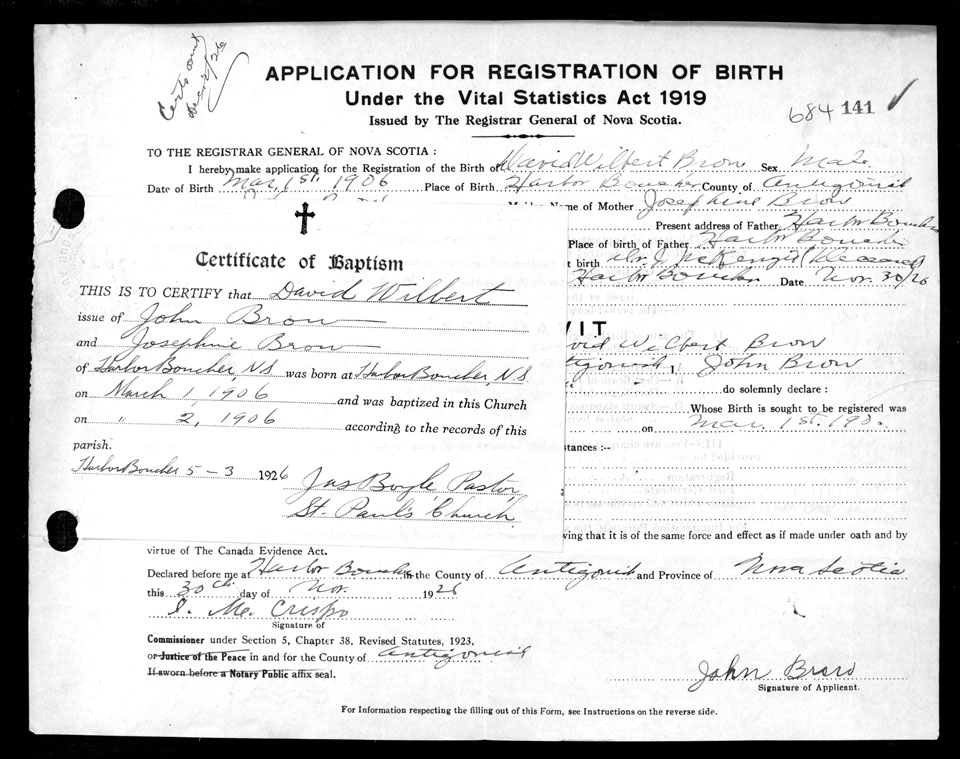 Certs sent
Dec 2/26
APPLICATION FOR REGISTRATION OF BIRTH
Under the Vital Statistics Act 1919
Issued by The Registrar General of Nova Scotia.
684 141
TO THE REGISTRAR GENERAL OF NOVA SCOTIA :
I hereby make application for the Registration of the Birth of David Wilbert Brow Sex Male
Date of Birth Mar, 1st. 1906 Place of Birth Harbor Boucher County of Antigonish
Name of Mother Josephine Brow
Present address of Father Harbor Boucher
Place of birth of Father Harbor Boucher
t birth Dr. J. McKenzie (Deceased)
Harbor Boucher Date Nov. 30/26
Certificate of Baptism
THIS IS TO CERTIFY that David Wilbert
issue of John Brow
and Josephine Brow
of Harbor Boucher, N.S. was born at Harbor Boucher, N.S.
on March 1, 1906 and was baptized in this Church
on " 2, 1906 according to the records of this
parish.
Harbor Boucher 5-3 1926
Jas Boyle Pastor
St. Paul's Church
VIT
vid Wilbert Brow
tigonish, John Brow
do solemnly declare :
Whose Birth is sought to be registered was
on Mar. 1st. 190
stances :--
ving that it is of the same force and effect as if made under oath and by
virtue of The Canada Evidence Act.
Declared before me at Harbor Boucher in the County of Antigonish and Province of Nova Scotia
this 30th day of Nov. 1926
Crispo
Signature of
Commissioner under Section 5, Chapter 38, Revised Statutes, 1923.
or Justice of the Peace in and for the County of Antigonish
If sworn before a Notary Public affix seal.
John Brow
Signature of Applicant.
For Information respecting the filling out of this Form, see Instructions on the reverse side.